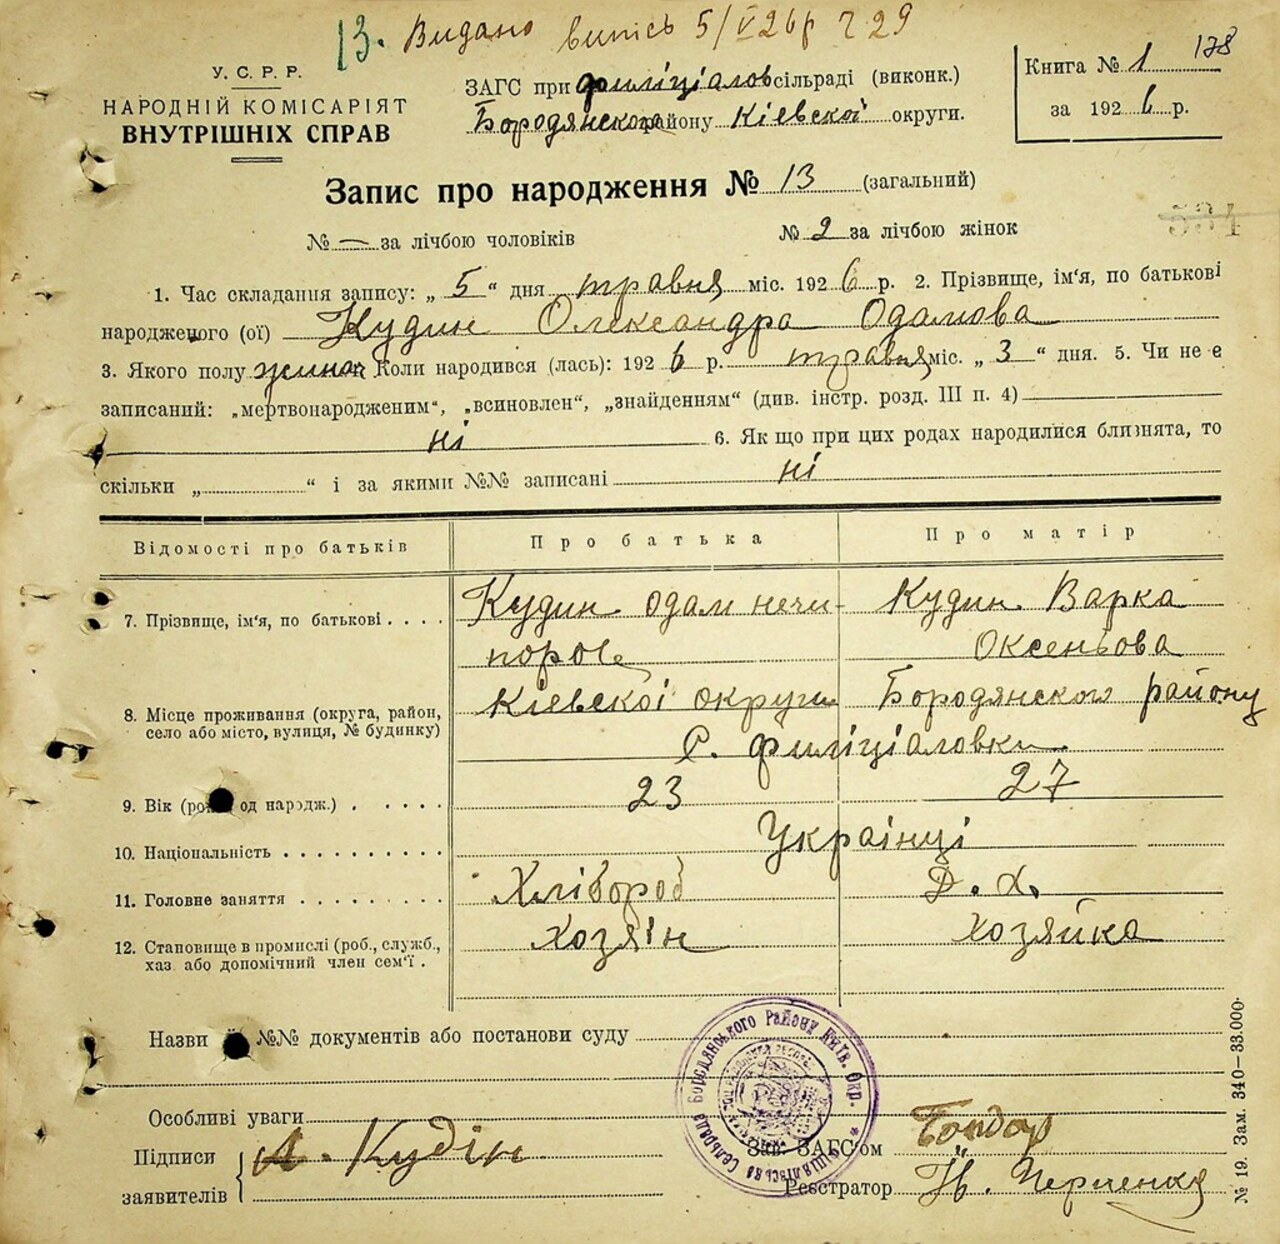 13. Видано випісь 5/V 26 р ч 29
178
У. С. Р. Р.
НАРОДНІЙ КОМІСАРІЯТ
ВНУТРІШНІХ СПРАВ
ЗАГС при филіціалов сільраді (виконк.)
Бородянского району Кіевскоі округи.
Книга № 1
за 1926 р.
Запис про народження № 13 (загальний)
№ — за лічбою чоловіків № 2 за лічбою жінок
534
1. Час складання запису: „ 5 “ дня травня міс. 1926 р. 2. Прізвище, ім‘я, по батькові
народженого (ої) Кудин Олександра Одамова
3. Якого полу жинок Коли народився (лась): 1926 р. травня міс. „ 3 “ дня. 5. Чи не є
записаний: „мертвонародженим“, „всиновлен“, „знайденням“ (див. інстр. розд. III п. 4)
ні 6. Як що при цих родах народилися близнята, то
скільки „ “ і за якими №№ записані ні
Відомості про батьків Про батька Про матір
7. Прізвище, ім‘я, по батькові . . . . Кудин одам нечи- Кудин Варка
порове Оксеньова
8. Місце проживання (округа, район, Кіевскоі округи Бородянского району
село або місто, вулиця, № будинку) С. филіціаловки
9. Вік (ро од народж.) . . . . . 23 27
10. Національність . . . . . . . . . . Українці
11. Головне заняття . . . . . . . . . Хлібороб Д. Х.
12. Становище в промислі (роб., служб., Хозяін Хозяйка
хаз. або допомічний член сем‘ї .
Назви №№ документів або постанови суду
Особливі уваги
Підписи А. Кудін
заявителів
Бородянського Району Київ. Окр.
Сельрада
Зав. ЗАГС‘ом Бондар
Реєстратор
№ 19. Зам. 340—33.000.